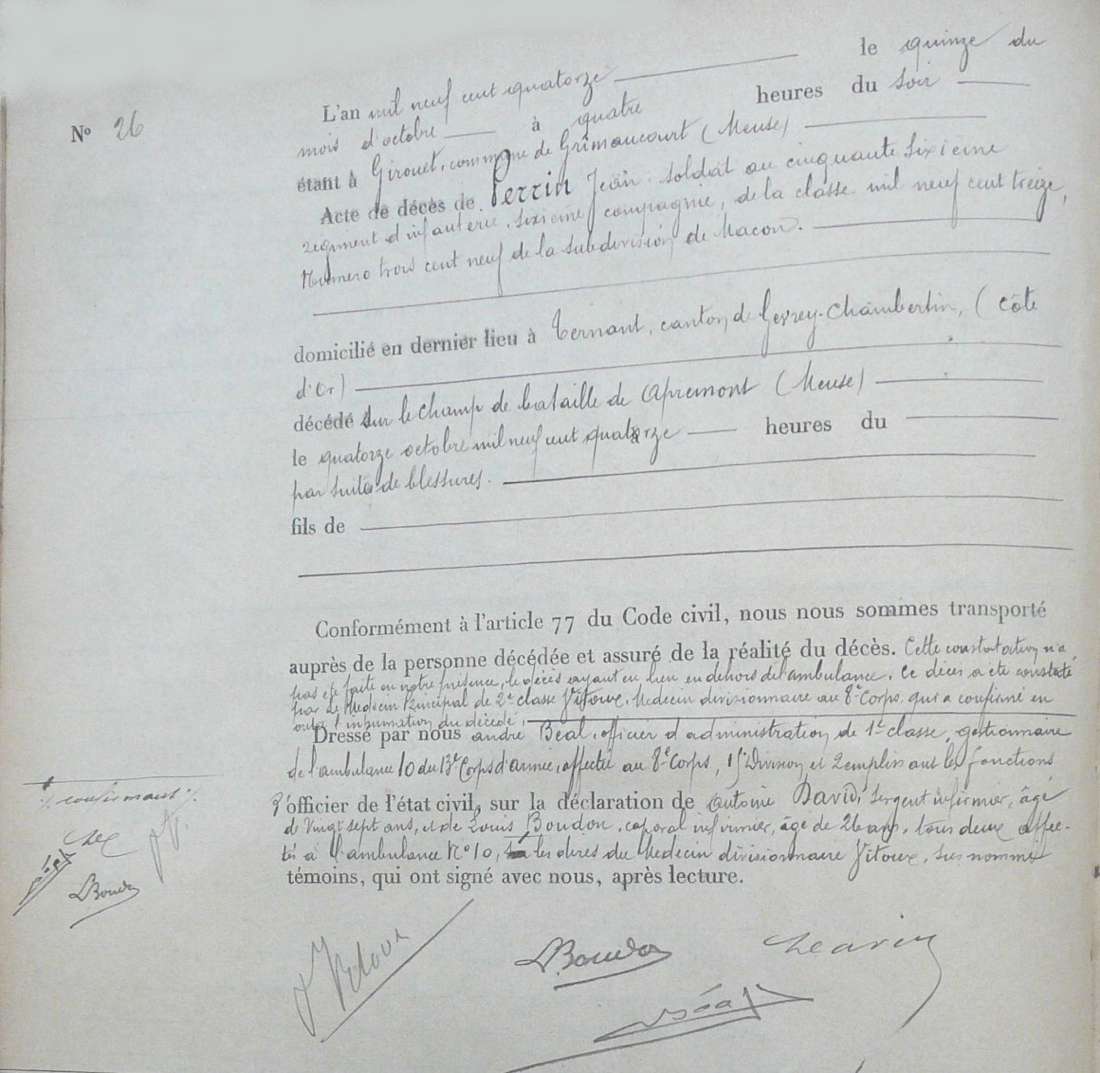 N° 26
L'an mil neuf cent quatorze le quinze du
mois d'octobre à quatre heures du soir
étant à Girouet, commune de Grimaucourt (Meuse)
Acte de décès de Perrin Jean soldat au cinquante sixième
régiment d'infanterie, sixième compagnie, de la classe mil neuf cent treize,
Numero trois cent neuf de la subdivision de Macon.
domicilié en dernier lieu à Ternant, canton de Gevrey-Chambertin, (Côte
d'Or)
décédé sur le champ de bataille de Apremont (Meuse)
le quatorze octobre mil neuf cent quatorze heures du
par suite de blessures.
fils de
Conformément à l'article 77 du Code civil, nous nous sommes transporté
auprès de la personne décédée et assuré de la réalité du décès. Cette constatation n'a
pas été faite en notre présence, le décès ayant eu lieu en dehors de l'ambulance. Ce décès a été constaté
par le Médecin Principal de 2e classe Vitoux, Médecin divisionnaire au 8e Corps qui a confirmé en
outre l'inhumation du décédé.
Dressé par nous André Béal, officier d'administration de 1e classe, gestionnaire
de l'ambulance 10 du 13e Corps d'armée, affectée au 8e Corps, 15e Division et remplissant les fonctions
d'officier de l'état civil, sur la déclaration de Antoine David, Sergent infirmier, âgé
de vingt sept ans, et de Louis Boudon, caporal infirmier, âgé de 26 ans, tous deux affec-
tés à l'ambulance N° 10, les dires du Médecin divisionnaire Vitoux, sus nommé
témoins, qui ont signé avec nous, après lecture.
./. confirmant ./.
Béal
LBoudon
Vitoux
LBoudon
Béal